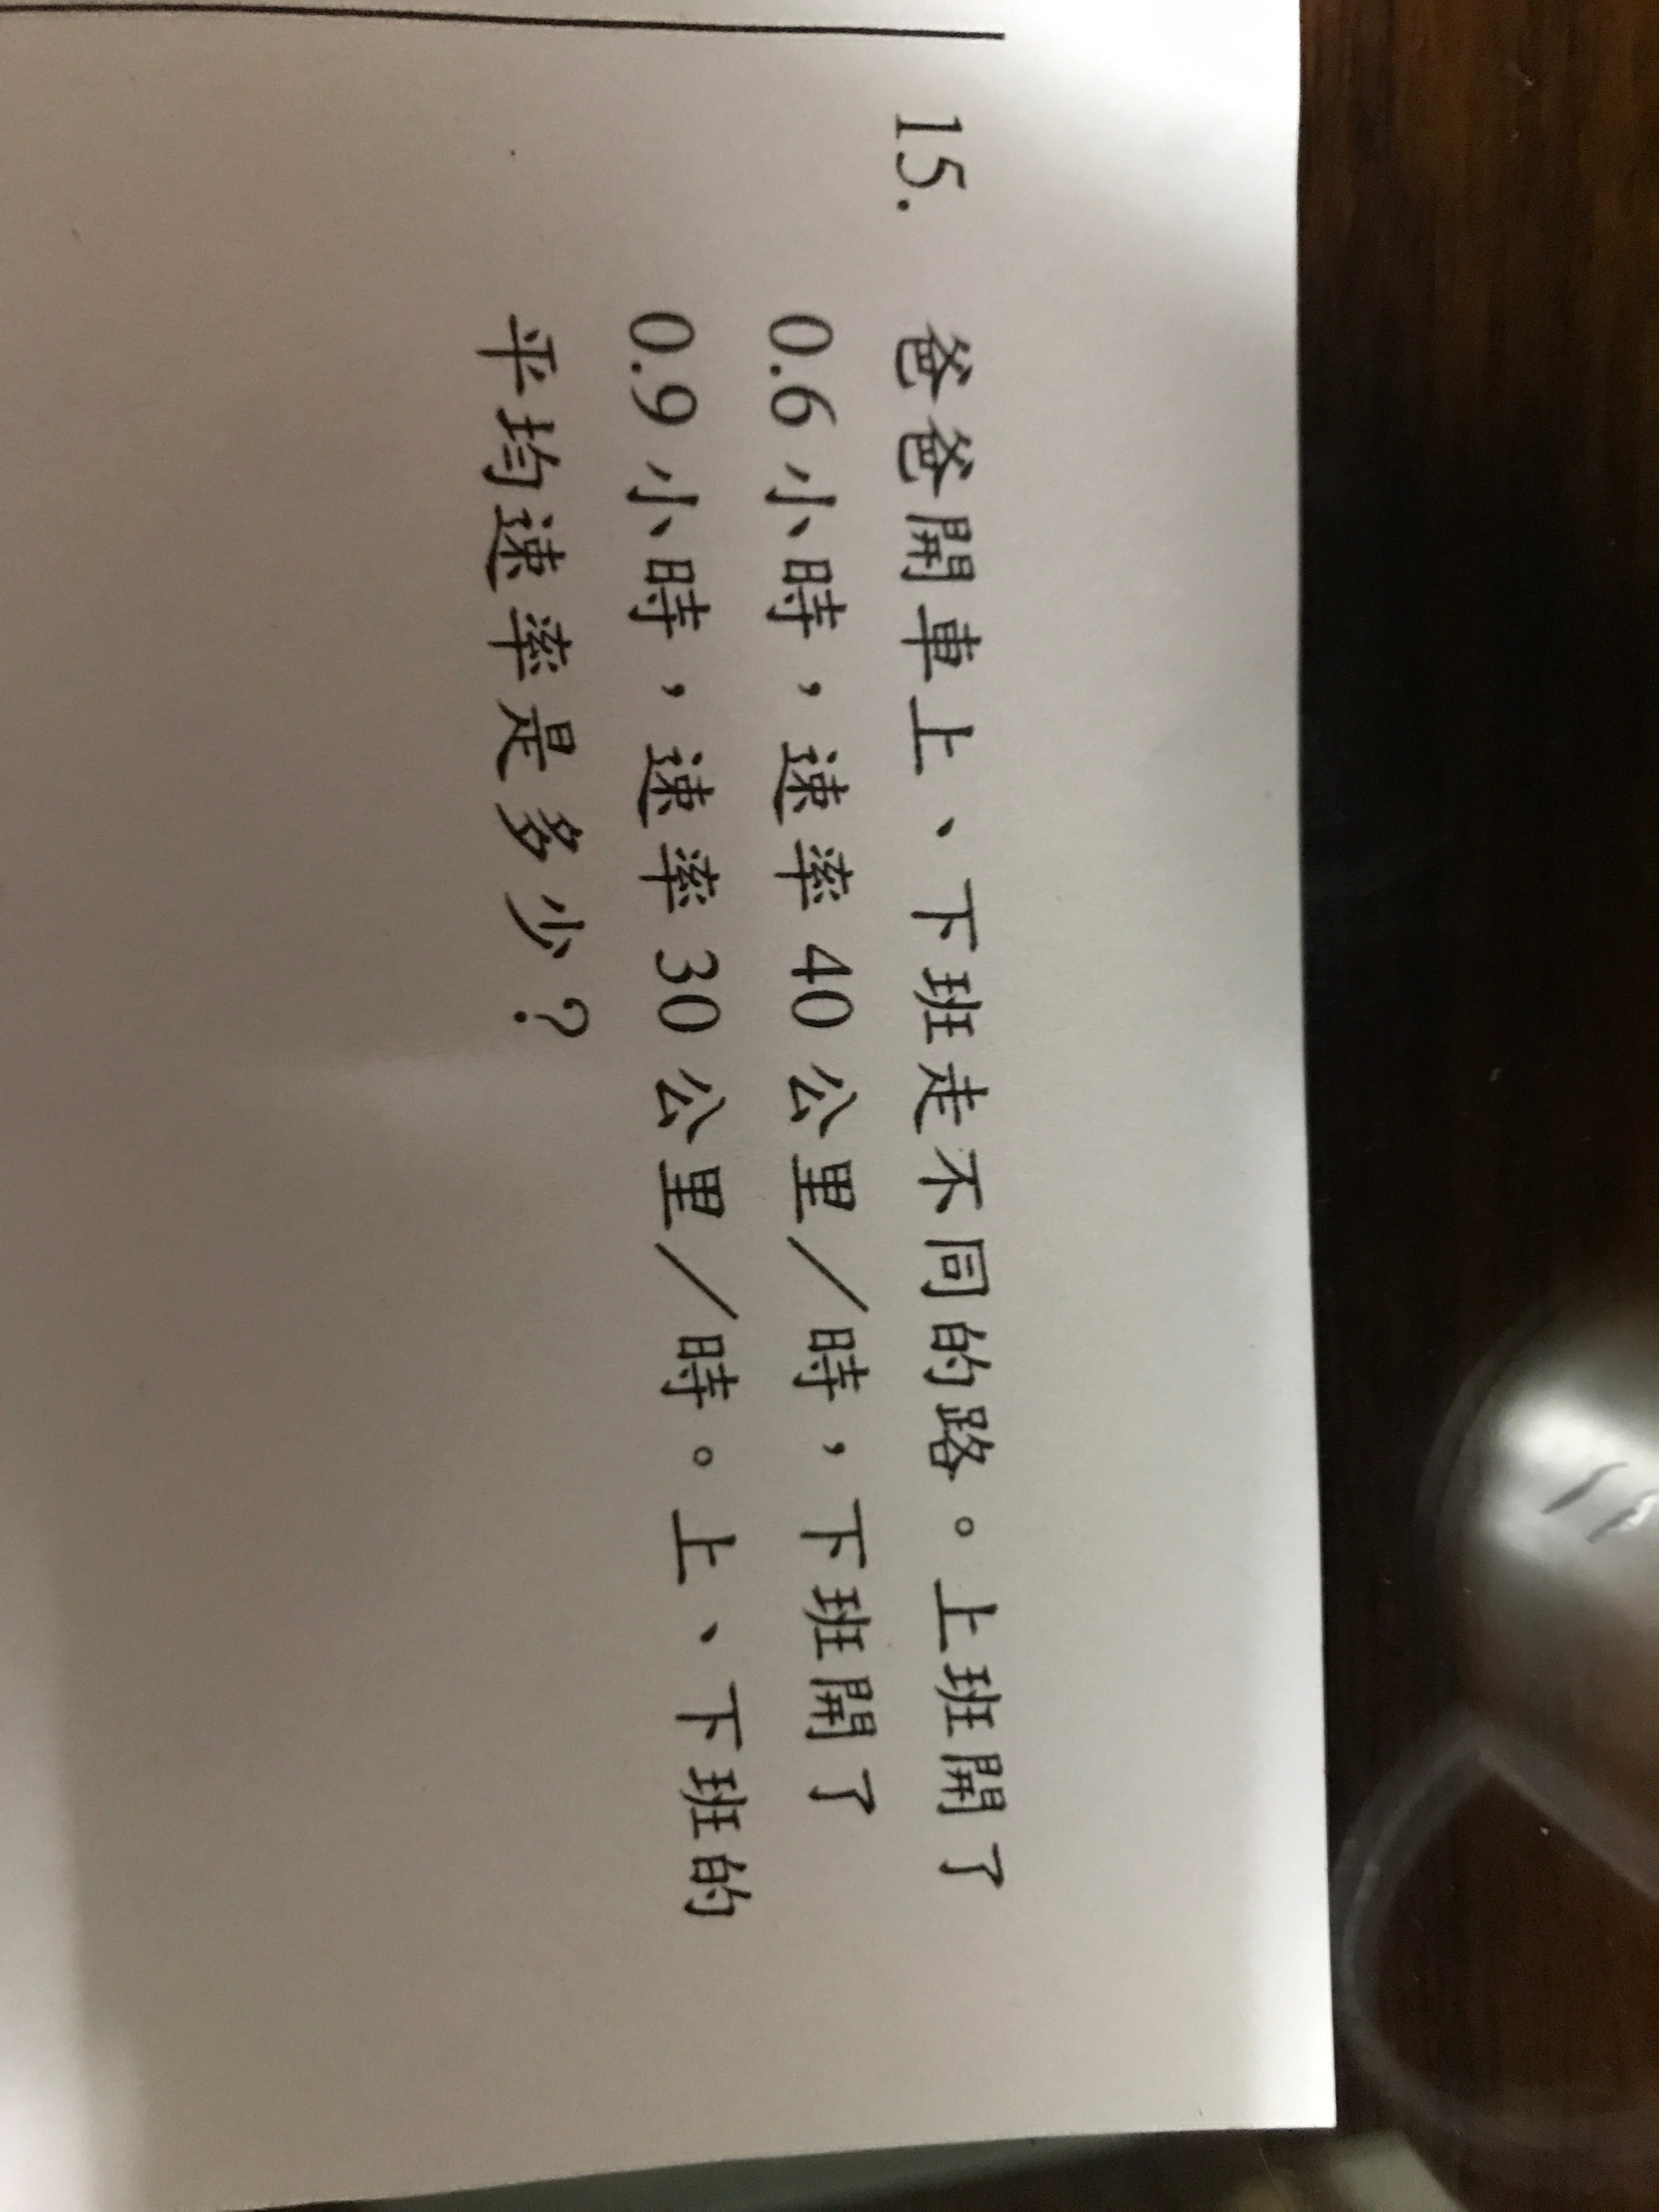 15. 爸爸開車上、下班走不同的路。上班開了
0.6 小時，速率 40 公里／時，下班開了
0.9 小時，速率 30 公里／時。上、下班的
平均速率是多少？